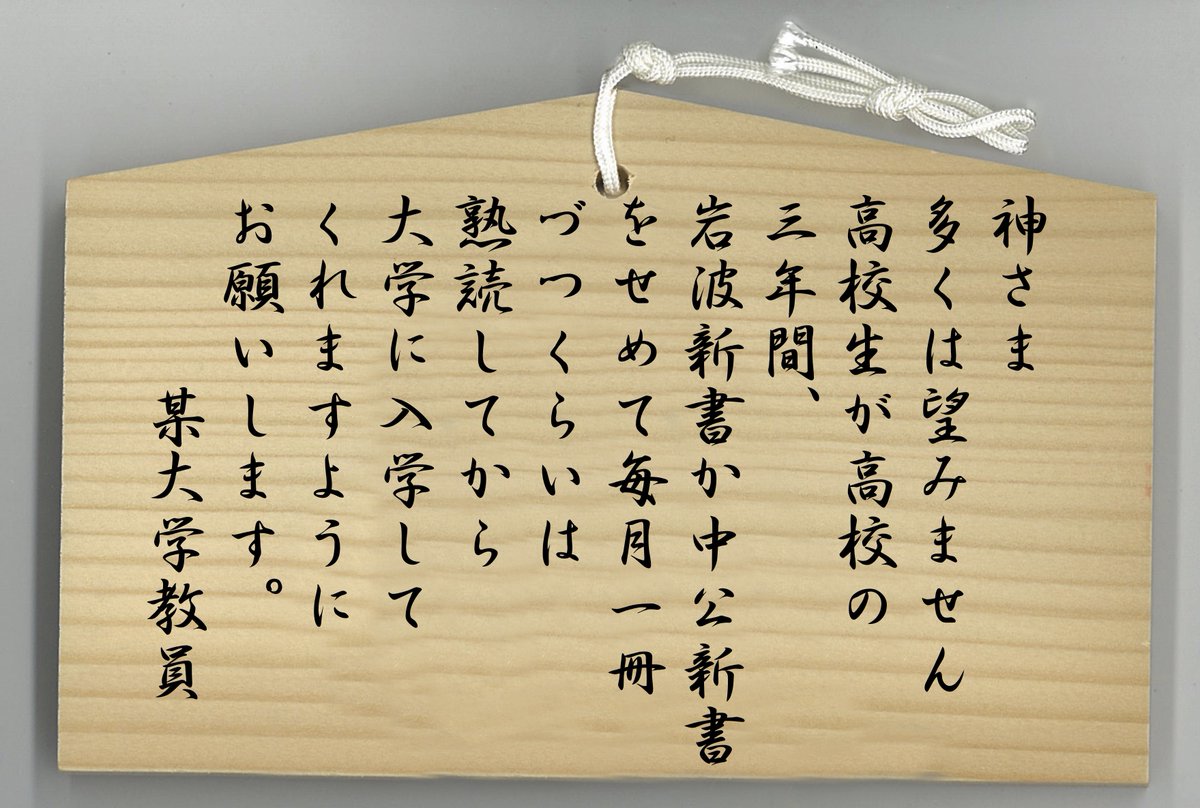 神さま
多くは望みません
高校生が高校の
三年間、
岩波新書か中公新書
をせめて毎月一冊
づつくらいは
熟読してから
大学に入学して
くれますように
お願いします。
某大学教員